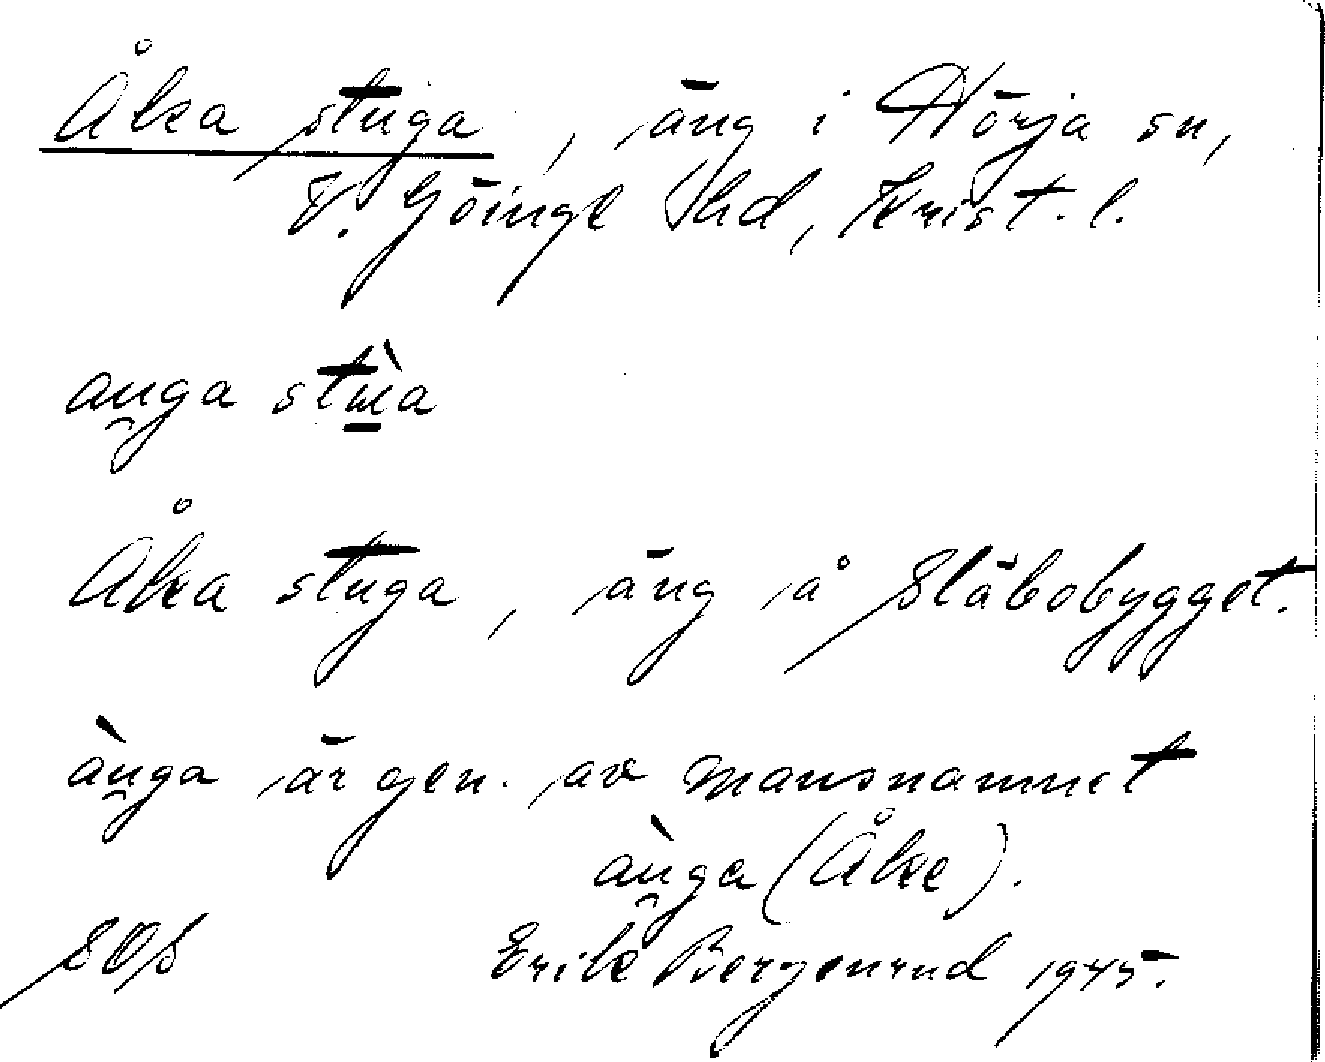 Åka stuga, äng i Hörja sn,
V. Göinge hd, Krist. l.
au̯ga stù̱a
Åka stuga, äng å Släbobygget.
àu̯ga är gen. av mansnamnet
àu̯ga (Åke).
SOS Erik Bergenrud 1945.